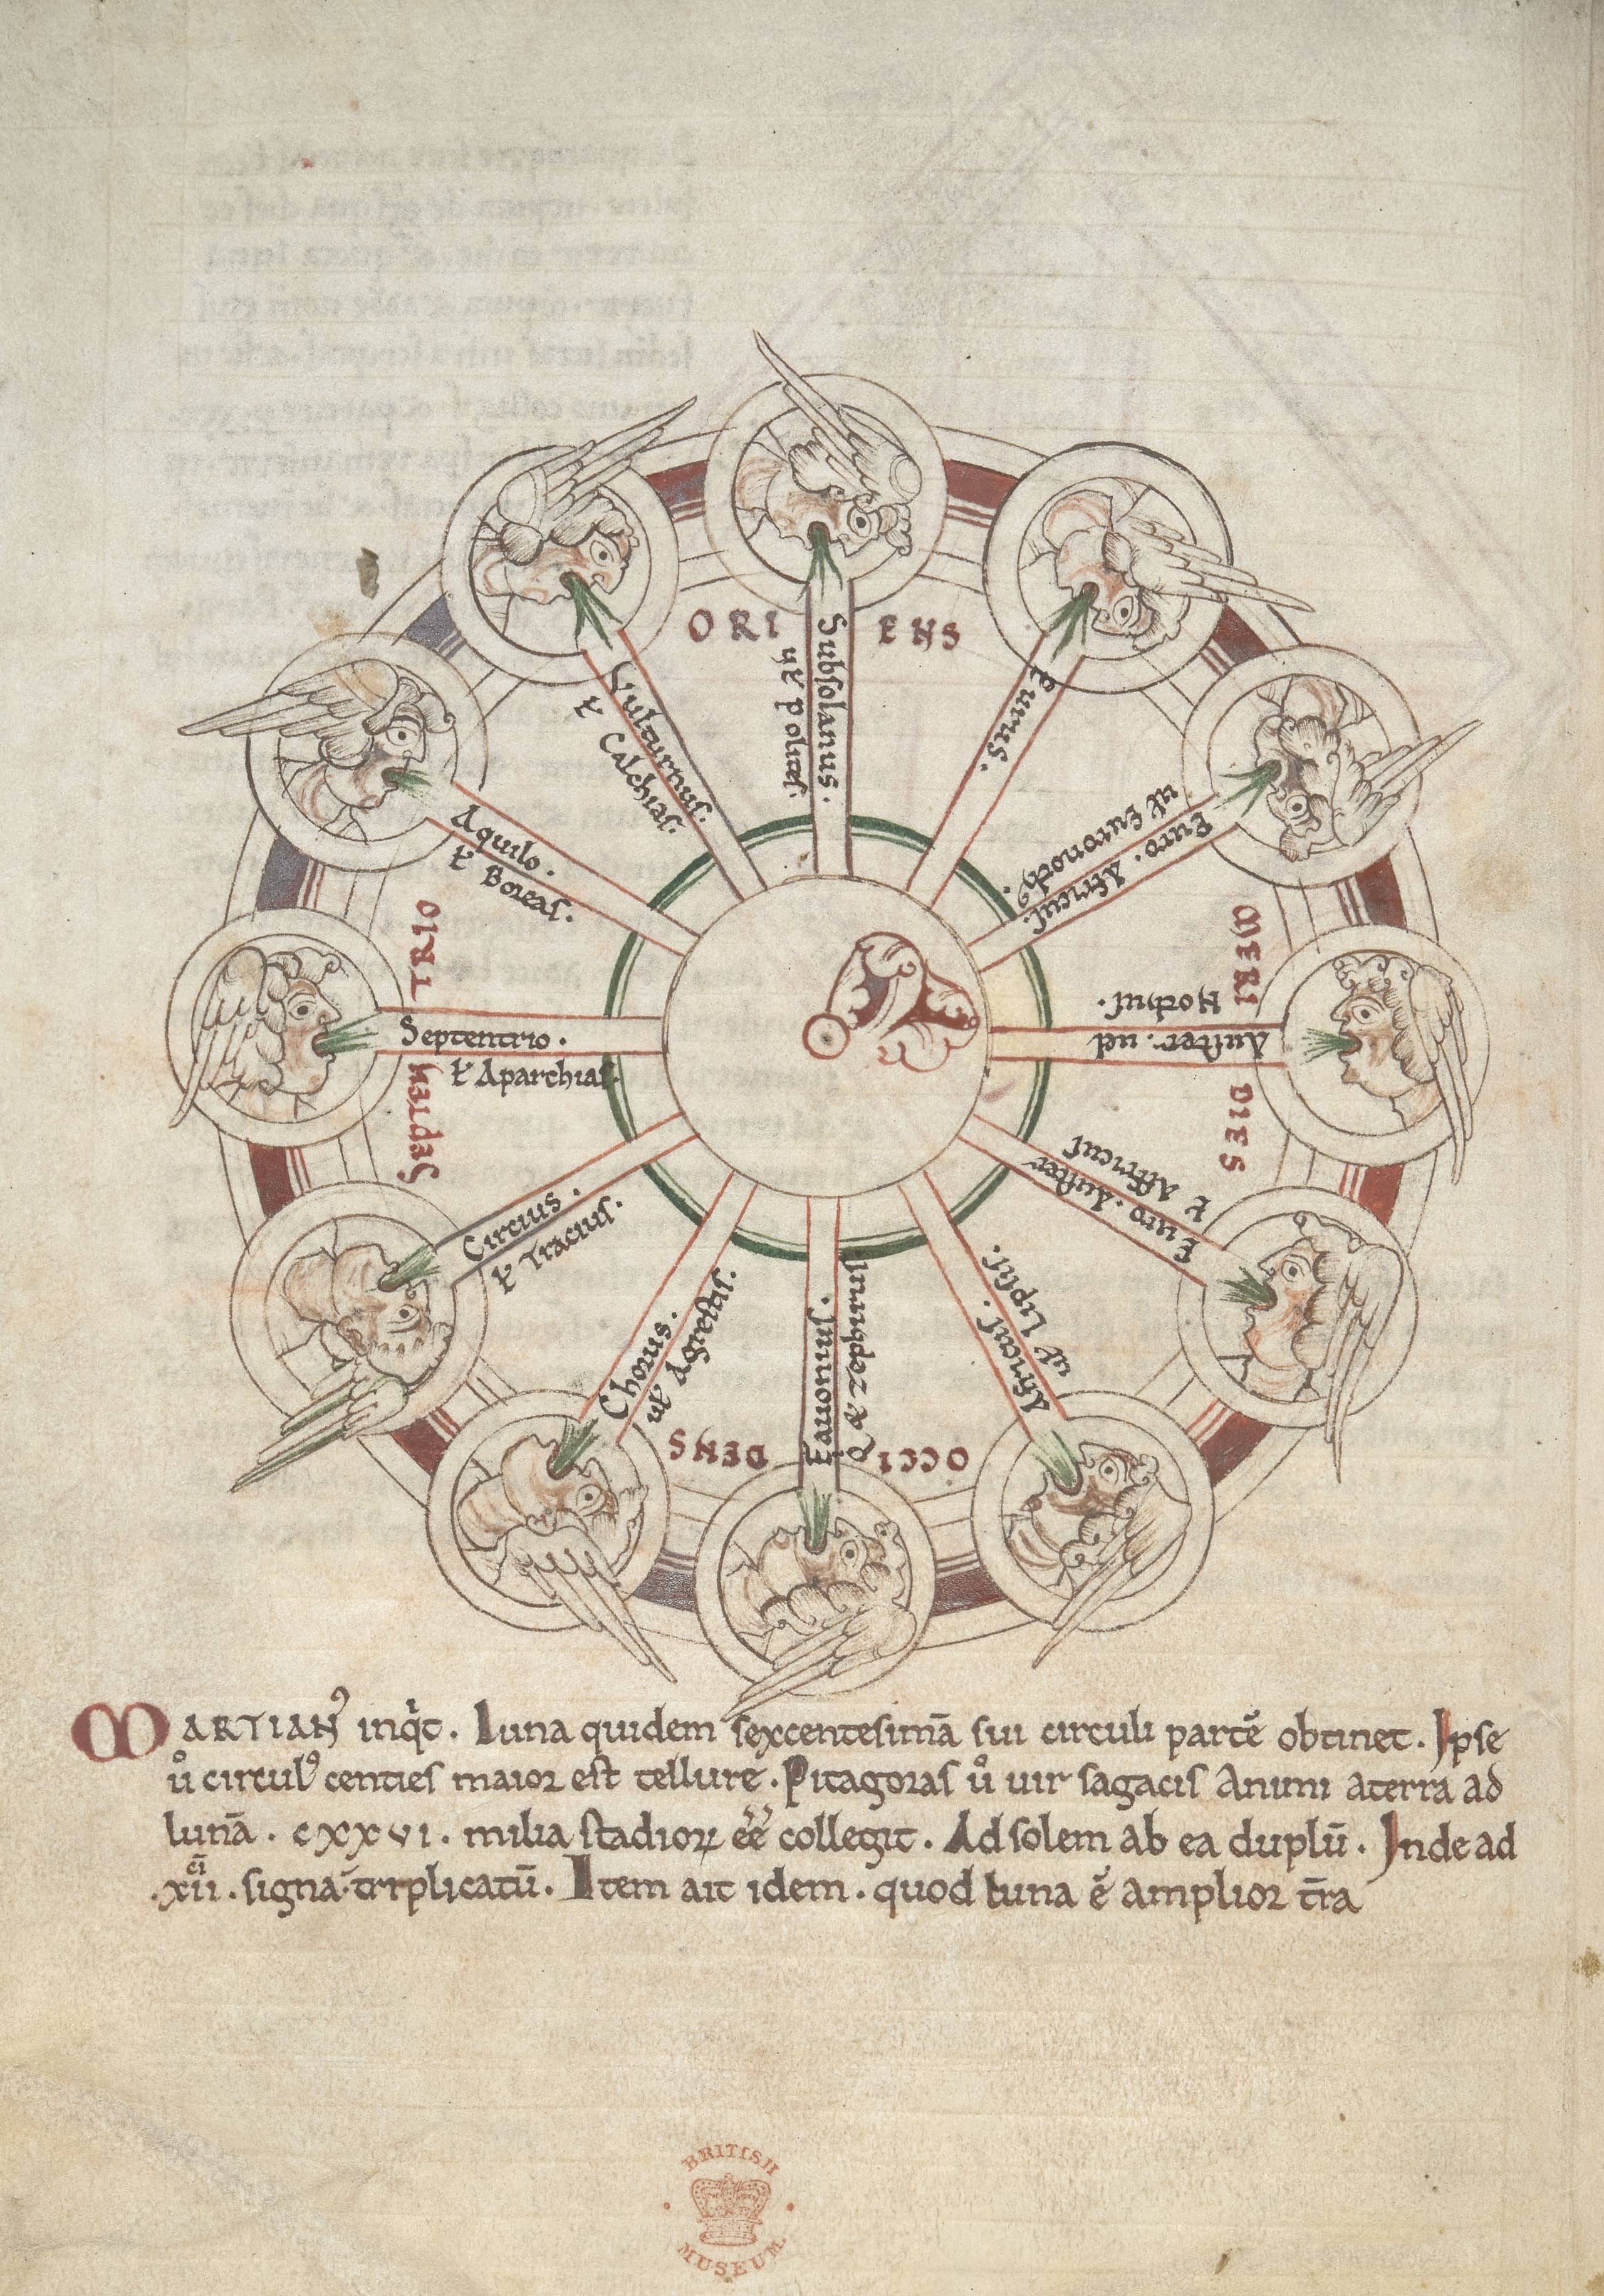 ORI ENS
Subsolanus.
ut polites.
Vulturnus.
ł Calchias.
Aquilo.
ł Boreas.
SEPTEN TRIO
Septentrio.
ł Aparchias.
Circius.
ł Tracius.
Chorus.
ut Agrestis.
OCCI DENS
Fauonius.
q̇ & zephirus
Africus.
ut Lipsis.
Euro. Auster
ł Affricus
MERI DIES
Auster. uel
Nothus.
Euro. Africus.
ut Euronothꝰ.
Eurus.
MARTIANꝰ inq̇t. Luna quidem sexcentesimā sui circuli partē obtinet. Ipse
u̾ circulꝰ centies maior est tellure. Pitagoras u̾ uir sagacis Animi aterra ad
lunā. cxxvi. milia stadioꝝ eē̄ collegit. Ad solem ab ea duplū. Inde ad
.xii.ci signa. triplicatū. Item ait idem. quod luna ē amplior t̄ra
BRITISH
MUSEUM